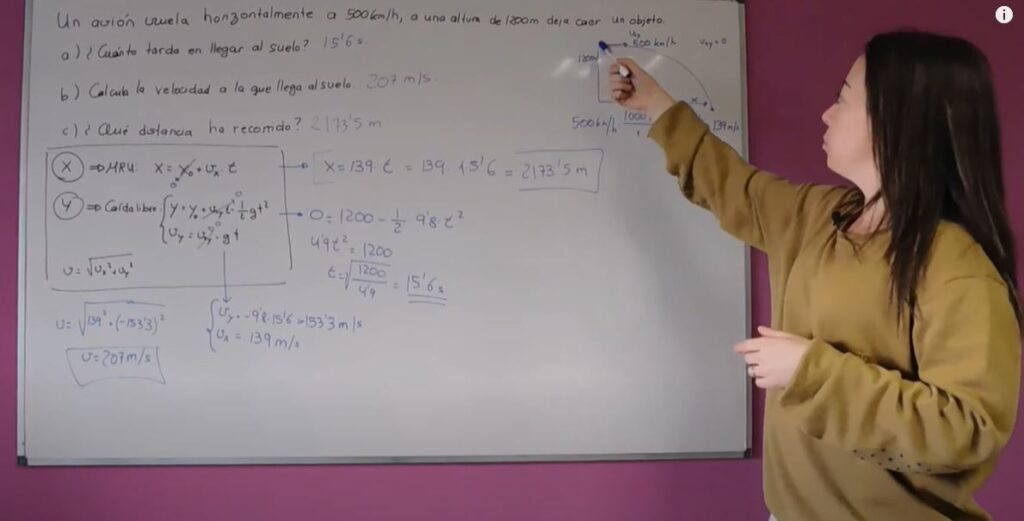 Un avión vuela horizontalmente a 500km/h, a una altura de 1200m deja caer un objeto.
a) ¿Cuánto tarda en llegar al suelo? 15'6 s
b) Calcula la velocidad a la que llega al suelo. 207 m/s.
c) ¿Qué distancia ha recorrido? 2173'5 m
Vox
500 km/h
Voy = 0
1200m
x
139 m/s
500 km/h · 1000
X ⇒ MRU: x = x₀ + vₓ · t
0
→ x = 139 t = 139 · 15'6 = 2173'5 m
Y ⇒ Caída libre { y = y₀ + v₀y t - 1/2 g t²
0
vy = v₀y - g t
0
v = √(vx² + vy²)
→ 0 = 1200 - 1/2 9'8 · t²
4'9 t² = 1200
t = √(1200/4'9) = 15'6 s
{ vy = -9'8 · 15'6 = -153'3 m/s
vx = 139 m/s
v = √(139² + (-153'3)²)
v = 207 m/s